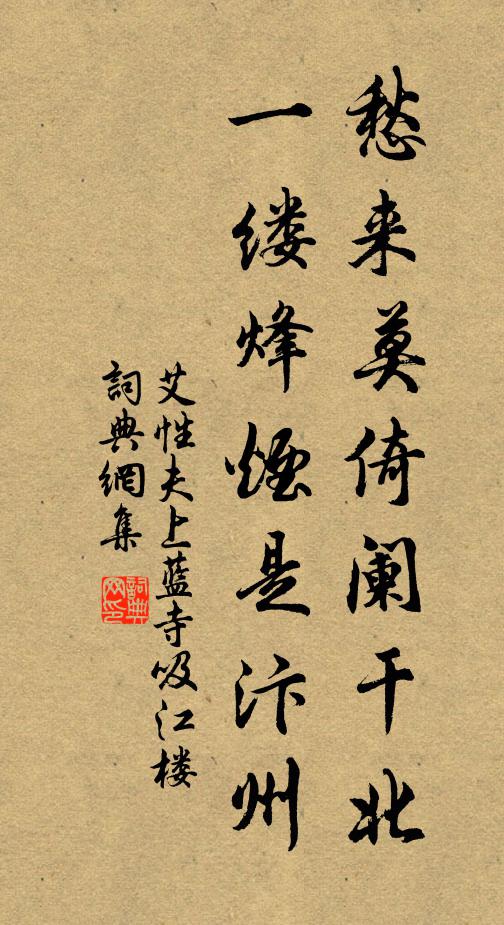 愁来莫倚阑干北
一缕烽煙是汴州
艾性夫上藍寺吸江楼
詞典網集
詞典
网印